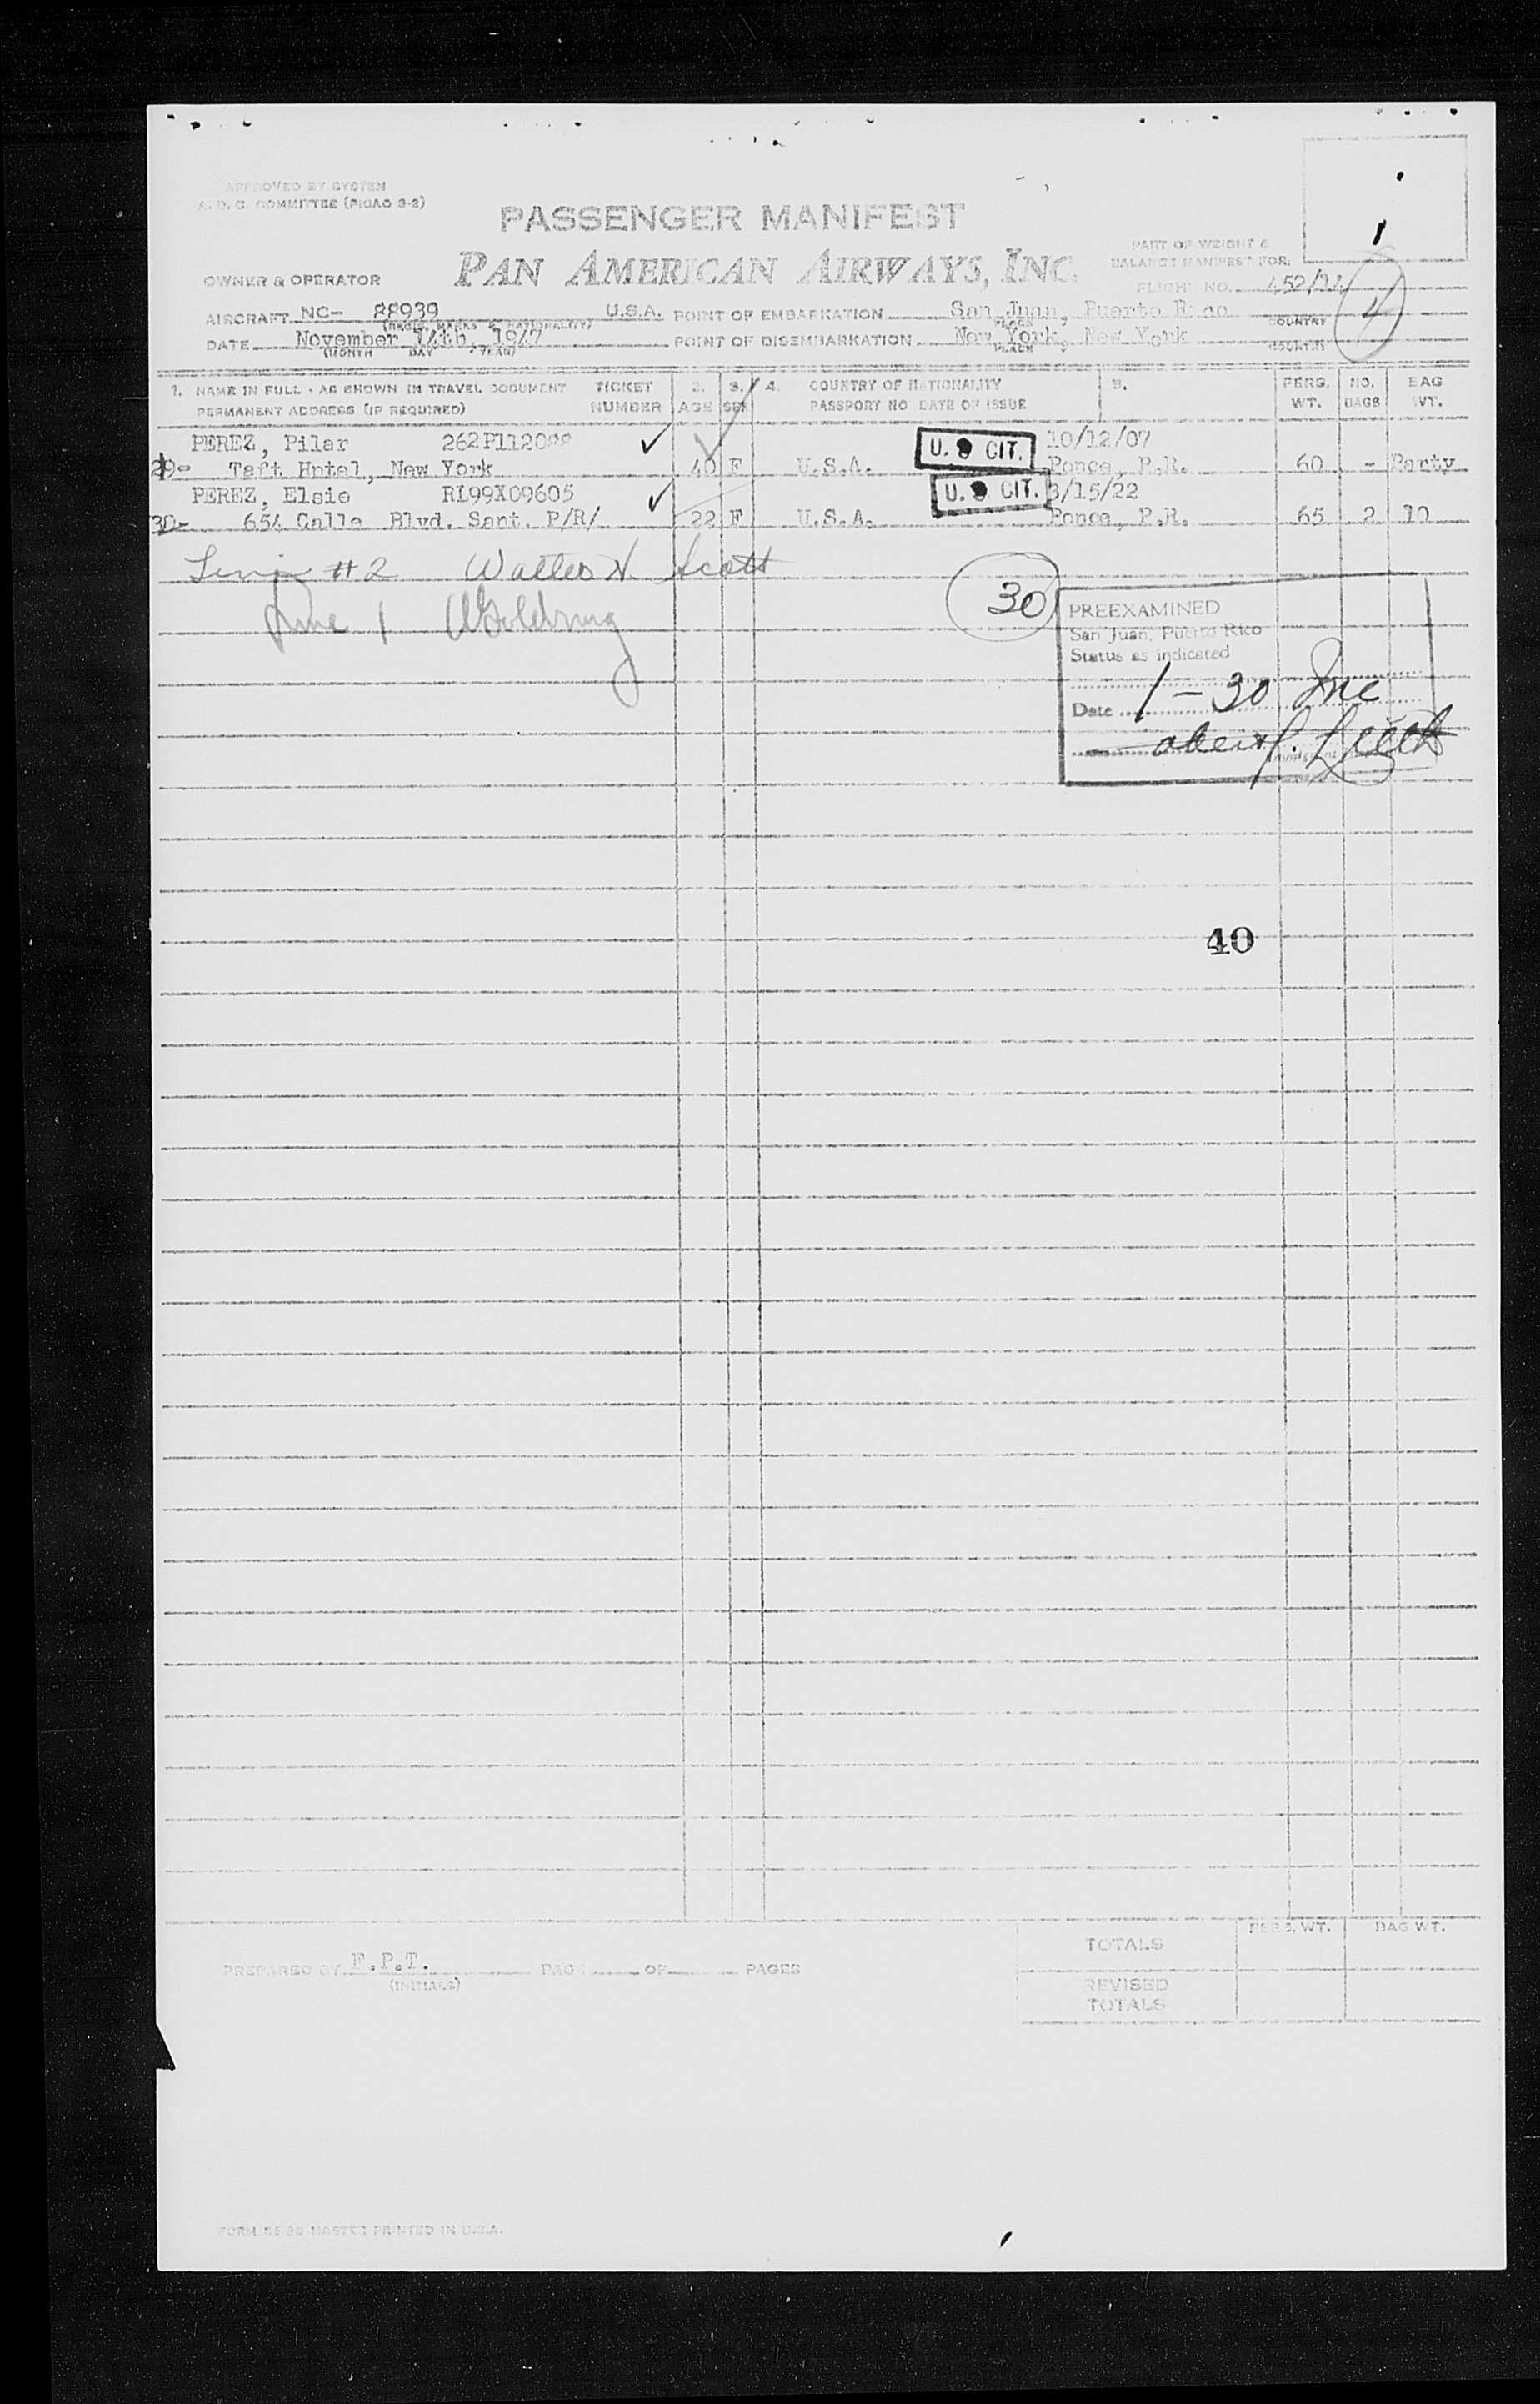 APPROVED BY SYSTEM
A. D. C. COMMITTEE (PICAO 3-2)
PASSENGER MANIFEST
PAN AMERICAN AIRWAYS, INC.
1
PART OF WEIGHT &
BALANCE MANIFEST FOR:
OWNER & OPERATOR
FLIGHT NO. 452/14
AIRCRAFT NC- 88939 U.S.A. POINT OF EMBARKATION San Juan, Puerto Rico
(REGIS. MARKS & NATIONALITY) PLACE COUNTRY
DATE November 14th, 1947 POINT OF DISEMBARKATION New York, New York
(MONTH DAY YEAR) PLACE COUNTRY
1. NAME IN FULL - AS SHOWN IN TRAVEL DOCUMENT TICKET 2. 3. 4. COUNTRY OF NATIONALITY 5. PERS. NO. BAG
PERMANENT ADDRESS (IF REQUIRED) NUMBER AGE SEX PASSPORT NO DATE OF ISSUE WT. BAGS WT.
PEREZ, Pilar 262P112088 U. S CIT. 10/12/07
29- Taft Hotel, New York 40 F U.S.A. Ponce, P.R. 60 - Party
PEREZ, Elsie RL99X09605 U. S CIT. 3/15/22
30- 654 Calle Blvd. Sant. P/R/ 22 F U.S.A. Ponce, P.R. 65 2 10
#2 Walter N. Scott
Line 1 WGoldring
30
PREEXAMINED
San Juan, Puerto Rico
Status as indicated
Date 1-30 Inc
40
PREPARED BY F.P.T. PAGE OF PAGES
(INITIALS)
PERS. WT. BAG WT.
TOTALS
REVISED
TOTALS
MASTER PRINTED IN U.S.A.